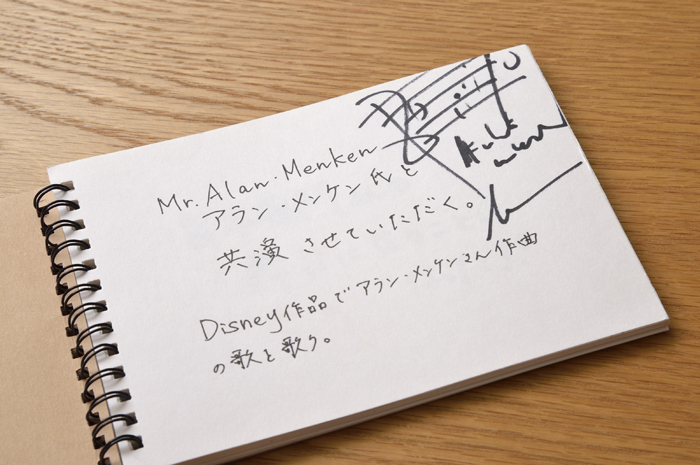 Mr. Alan・Menken
アラン・メンケン氏と
共演させていただく。
Disney作品でアラン・メンケンさん作曲
の歌を歌う。